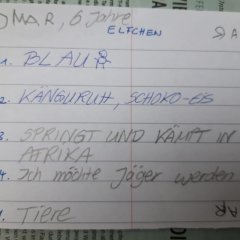 OMAR, 6 Jahre
ELFCHEN
1. BLAU
2. KÄNGURUH, SCHOKO-EIS
3. SPRINGT UND KÄMPFT IN
AFRIKA
4. Ich möchte Jäger werden
Tiere